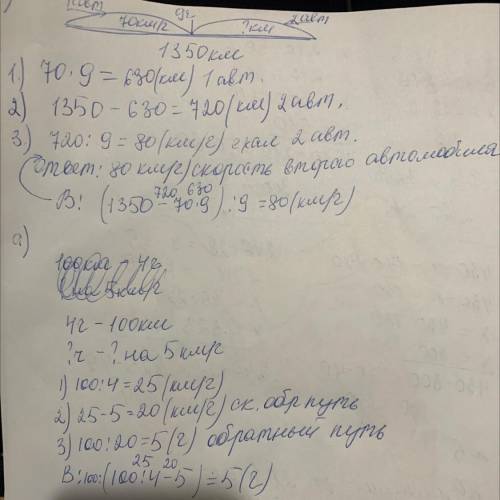 1 авт
2 авт
70км/г
9г
? км
1350км
1.) 70·9=630(км) 1 авт.
2) 1350-630=720(км) 2 авт.
3.) 720:9=80(км/г) 2 авт.
Ответ: 80 км/г скорость второго автомобиля
720 630
В: (1350-70·9):9=80(км/г)
а)
100км - 4г
4г-100км
?г-? на 5 км/г
1) 100:4=25(км/г)
2) 25-5=20(км/г) ск. обр путь
3) 100:20=5(г) обратный путь
25 20
В:100:(100:4-5)=5(г)